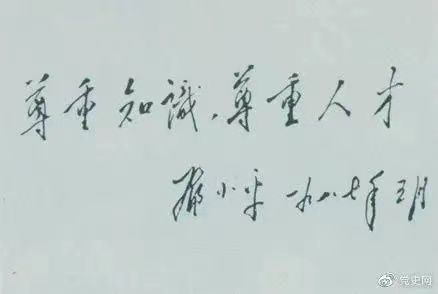 尊重知識,尊重人才
鄧小平 一九八七年三月
党史网